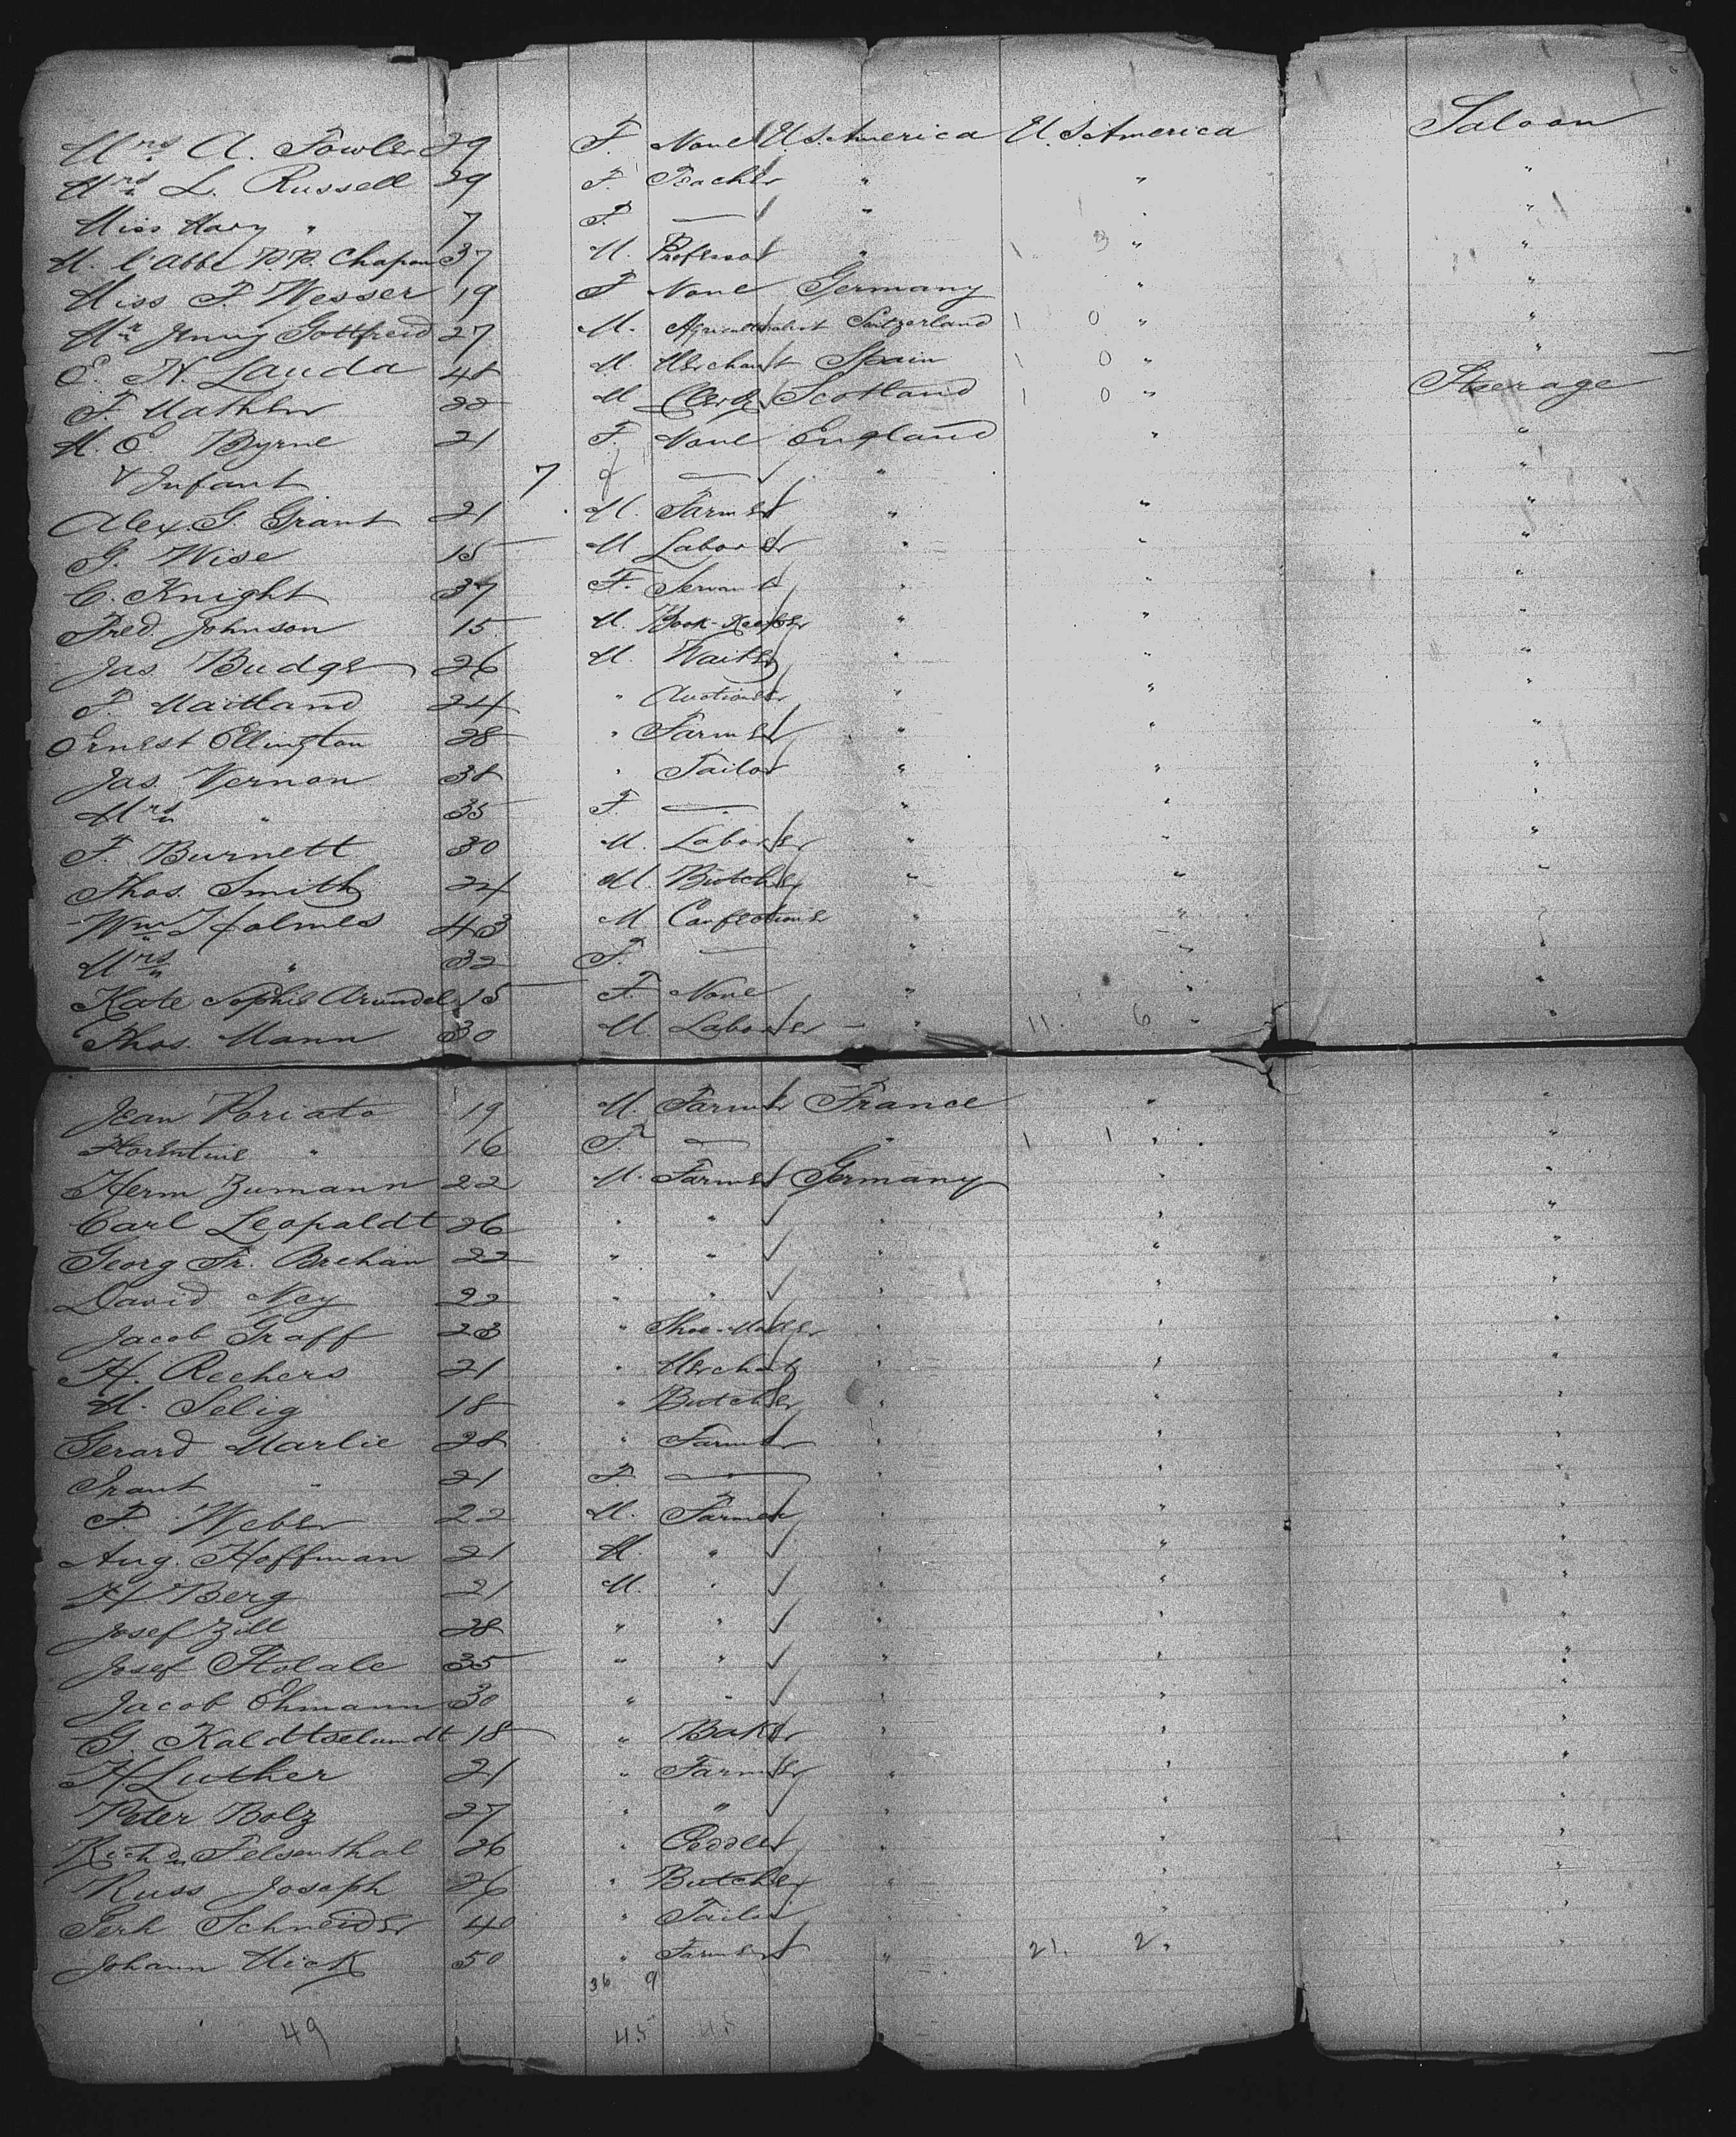 Mrs A. Fowler 29 F. None U.S. America U.S. America Saloon
Mrs L. Russell 29 F. Teacher " " "
Miss Mary " 7 F. — " " "
M. l'Abbe P.P. Chapon 37 M. Professor " 1 3 " "
Miss F. Wesser 19 F None Germany " "
Mr Jenny Gottfreid 27 M. Agriculturalist Switzerland 1 0 " "
E. H. Lauda 48 M. Merchant Spain 1 0 " "
F. Mather 22 M Clerk Scotland 1 0 " Steerage
M. E. Byrne 21 F. None England " "
& Infant 7 f — " "
Alex. G. Grant 21 M. Farmer " " "
G. Wise 15 M Laborer " " "
C. Knight 37 F. Servant " " "
Fred. Johnson 15 M. Book-Keeper " " "
Jas. Budge 26 M. Waiter " "
F. Maitland 24 " Auctioneer " " "
Ernest Ellington 28 " Farmer " " "
Jas. Vernon 38 " Tailor " " "
Mrs " 35 F. — " " "
F. Burnett 30 M. Laborer " "
Thos. Smith 24 M. Butcher " " "
Wm Holmes 43 M Confectioner " " "
Mrs " 32 F. — " " "
Kate Sophie Arundel 15 F. None " " "
Thos. Mann 30 M. Laborer " 11. 6 " "
Jean Poriato 19 M. Farmer France " "
Florentine " 16 F. — " 1 1 " "
Herm Zumann 22 M. Farmer Germany " "
Carl Leopoldt 26 " " " " "
Georg Fr. Brehan 22 " " " " "
David Ney 22 " " " " "
Jacob Graff 23 " Shoe-Maker " " "
H. Rechers 21 " Merchant " " "
M. Selig 18 " Butcher " " "
Gerard Marlie 28 " Farmer " " "
" 21 F. — " " "
F. Weber 22 M. Farmer " " "
Aug. Hoffman 21 M. " " " "
H Berg 21 M. " " " "
Josef Zill 28 " " " " "
Josef 35 " " " " "
Jacob Ehmann 30 " " " " "
G. 18 " Baker " " "
H Luther 21 " Farmer " " "
Peter Bolz 27 " " " " "
Richd Felsenthal 26 " Peddler " "
Russ Joseph 26 " Butcher " " "
Schneider 40 " Tailor " "
Johann Mick 50 " Farmer " 21. 2 " "
36 9
49 45 48